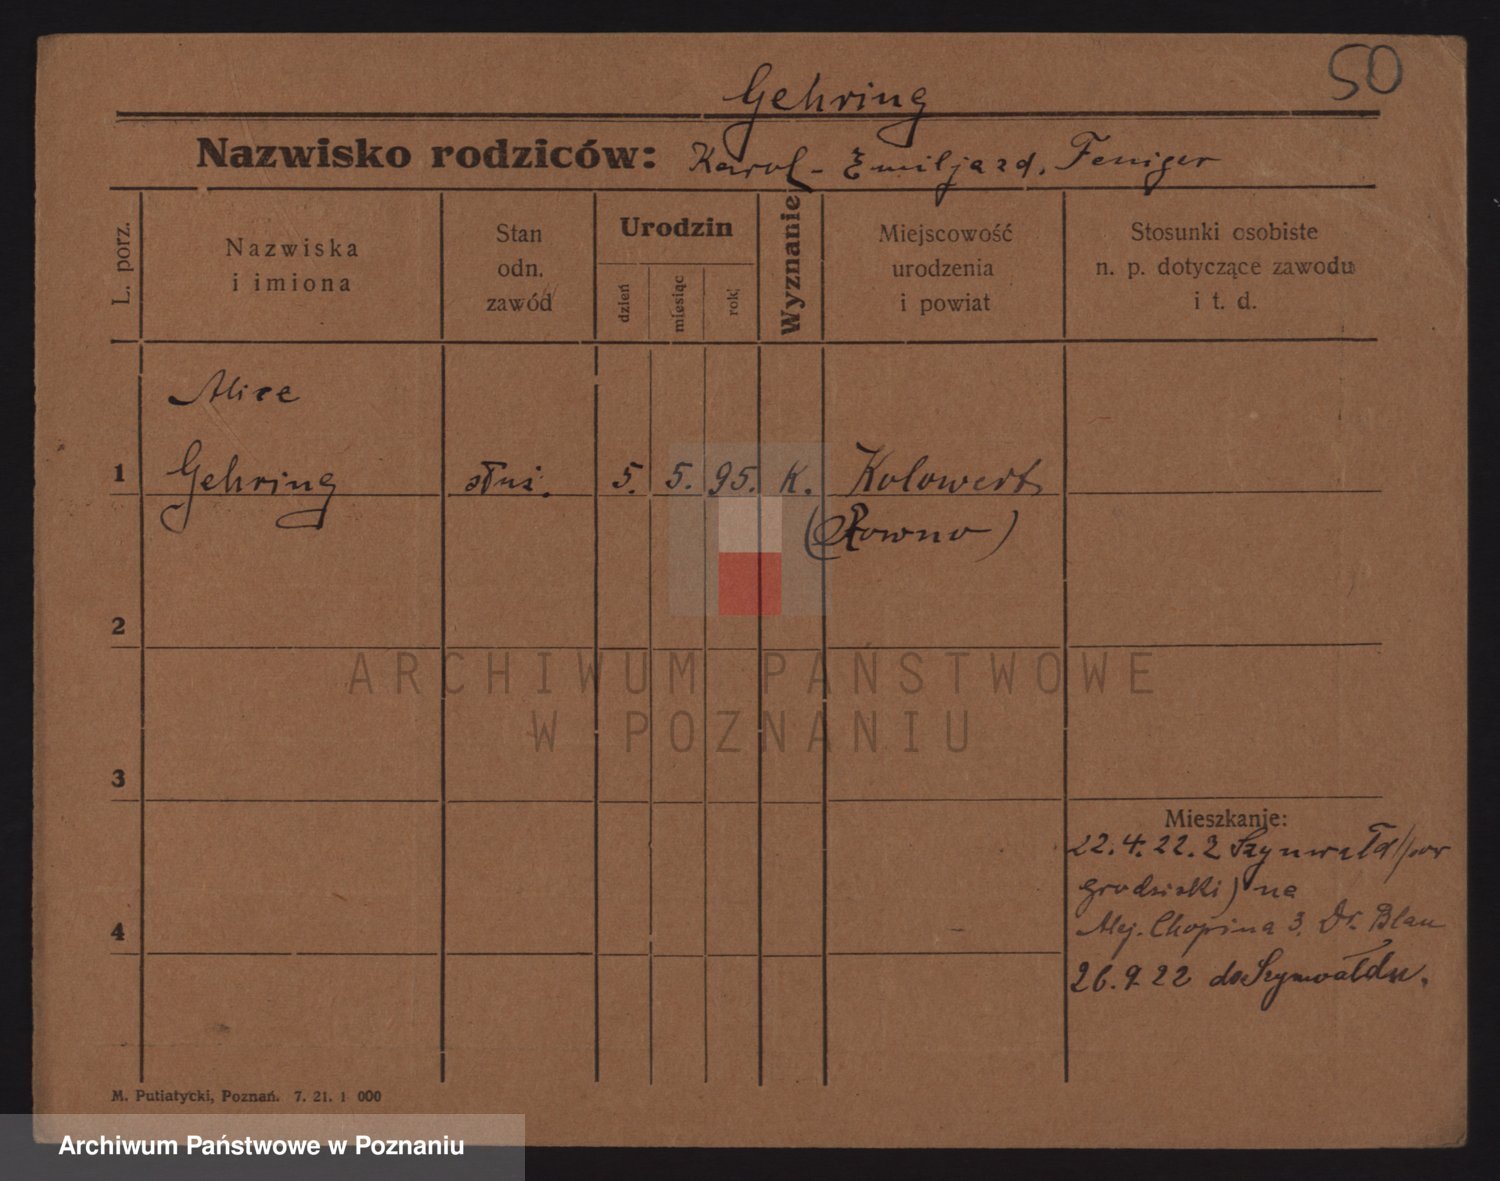 50
Gehring
Nazwisko rodziców: Karol - Emilja zd. Feniger
L. porz.
Nazwiska
i imiona
Stan
odn.
zawód
Urodzin
dzień
miesiąc
rok
Wyznanie
Miejscowość
urodzenia
i powiat
Stosunki osobiste
n. p. dotyczące zawodu
i t. d.
Alice
1 Gehring służ. 5. 5. 95. K. Kolowert
(Rowno)
2
ARCHIWUM PAŃSTWOWE
W POZNANIU
3
Mieszkanie:
22.4.22. z Szynwałd/pow
grodziski) na
4 Alej. Chopina 3. Dr. Blau
26.9 22 do Szynwałdu.
M. Putiatycki, Poznań. 7. 21. 1 000
Archiwum Państwowe w Poznaniu